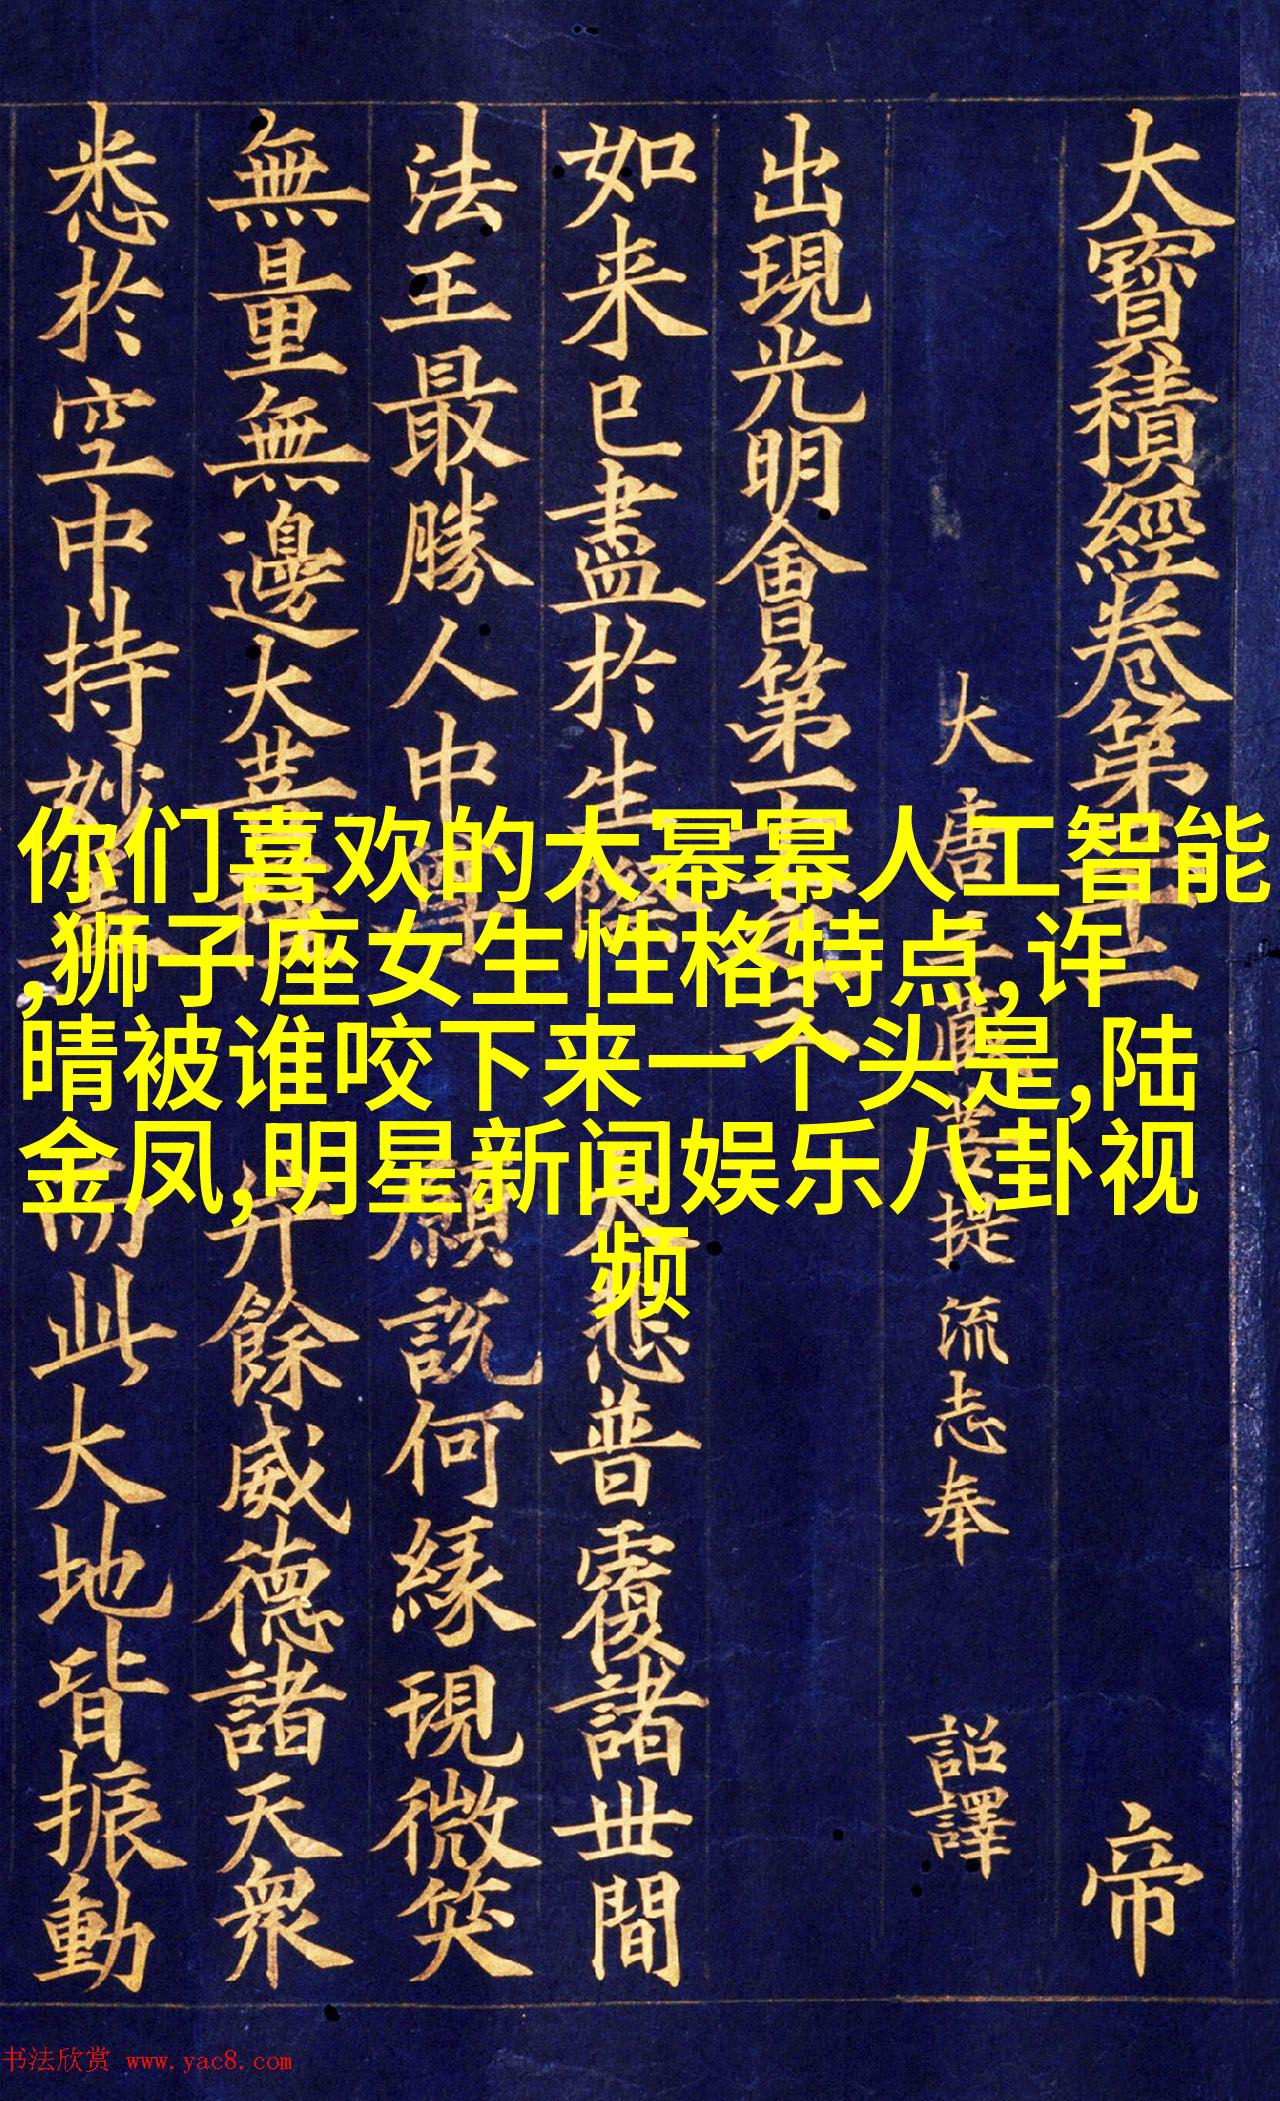 大寶積經卷第三十二 帝
大唐三藏菩提流志奉 詔譯
出現光明會第十一之三
如来已盡於生際 大悲普覆諸世間
法王最勝人中尊 願說何緣現微笑
無量無邊大菩薩 并餘威德諸天衆
悉於空中持妙 而此大地皆振動
你们喜欢的大幂幂人工智能
,狮子座女生性格特点,许
晴被谁咬下来一个头是,陆
金凤,明星新闻娱乐八卦视
频
书法欣赏 www.yac8.com